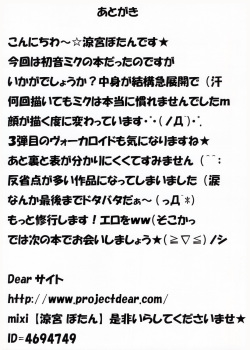 あとがき
こんにちわ～☆涼宮ぼたんです★
今回は初音ミクの本だったのですが
いかがでしょうか？中身が結構急展開で（汗
何回描いてもミクは本当に慣れませんでしたm
顔が描く度に変わっています･ﾟ･(ﾉД`)･ﾟ･
3弾目のヴォーカロイドも気になりますね★
あと裏と表が分かりにくくてすみません（￣；
反省点が多い作品になってしまいました（涙
なんか最後までドタバタだぁ～（っД`*）
もっと修行します！エロをww（そこかっ
では次の本でお会いしましょう★(≧▽≦)ノシ
Dear サイト
http://www.projectdear.com/
mixi【涼宮 ぼたん】是非いらしてくださいませ★
ID=4694749